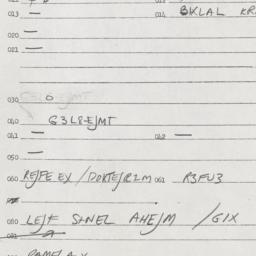 013 — 014 BKLAL KR
020 —
021 —
030 O
040 G3L8-EJMT
041 — 042 —
050 —
060 REJFE EX / DOKTEJRZM 061 R3FU3
080 LEJF SANEL AHEJM / GIX